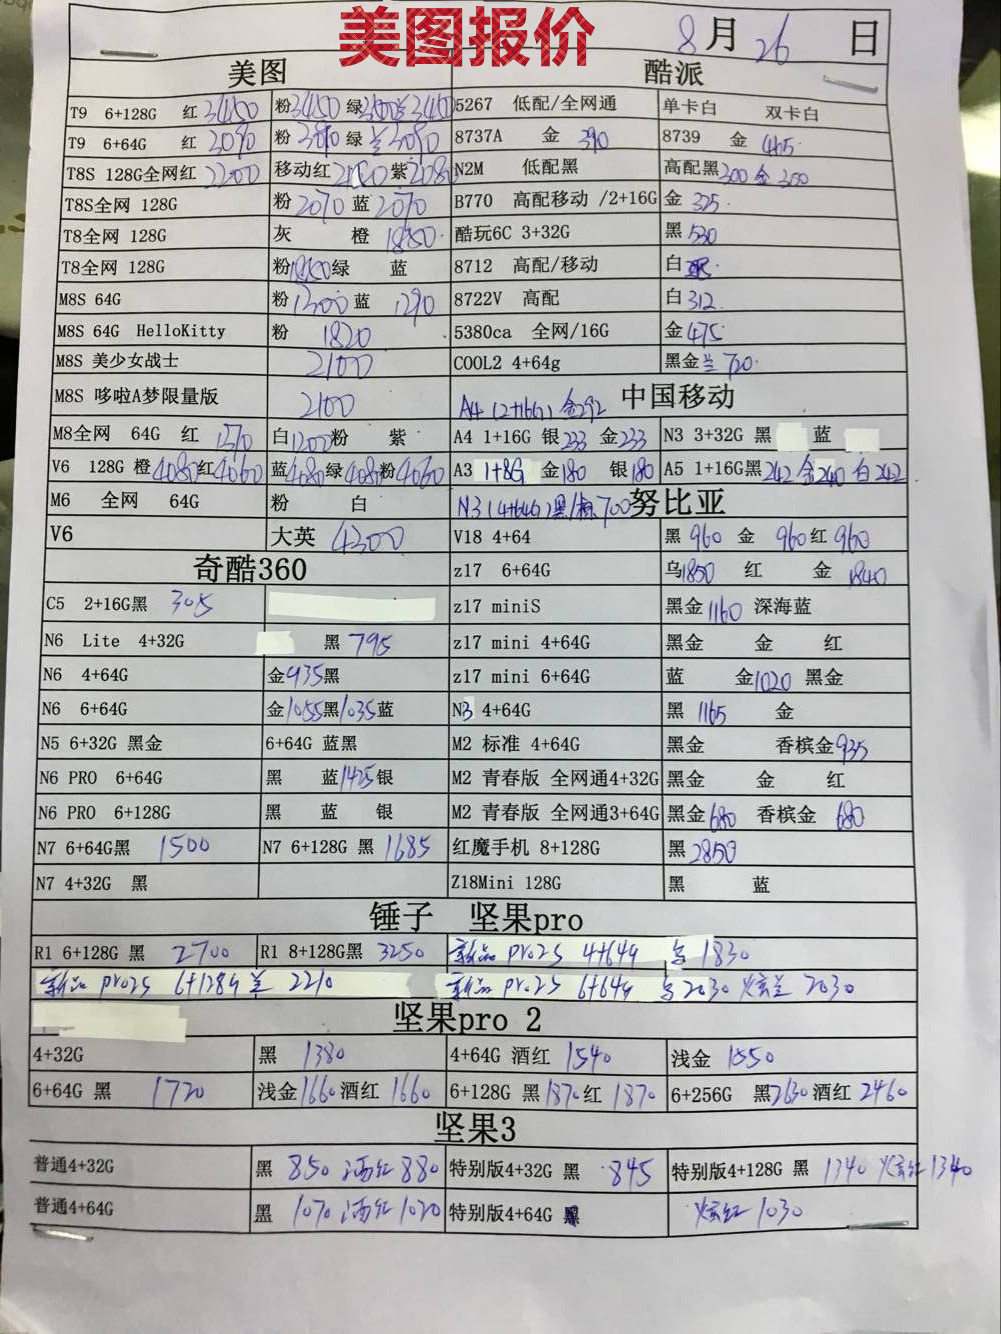 美图报价
8月26日
美图 酷派
T9 6+128G 红3450 粉3450 绿 3450 5267 低配/全网通 单卡白 双卡白
T9 6+64G 红 3090 粉 3090 绿 兰3090 8737A 金 390 8739 金 465
T8S 128G全网红 2200 移动红 紫2080 N2M 低配黑 高配黑300 金 300
T8S全网 128G 粉 2070 蓝 2070 B770 高配移动 /2+16G 金 325
T8全网 128G 灰 橙 1850 酷玩6C 3+32G 黑 530
T8全网 128G 粉1850绿 蓝 8712 高配/移动 白
M8S 64G 粉 1300 蓝 1290 8722V 高配 白312
M8S 64G HelloKitty 粉 1820 5380ca 全网/16G 金475
M8S 美少女战士 2100 COOL2 4+64g 黑金兰 720
M8S 哆啦A梦限量版 2100 A4 (2+16G) 金292 中国移动
M8全网 64G 红 白1200粉 紫 A4 1+16G 银233 金233 N3 3+32G 黑 蓝
V6 128G 橙4080红4060 蓝4080绿4080粉4060 A3 1+8G 金180 银180 A5 1+16G黑242 金240 白242
M6 全网 64G 粉 白 N3(4+64G)黑/ 700 努比亚
V6 大英 4300 V18 4+64 黑 960 金 960红 960
奇酷360 z17 6+64G 乌1850 红 金 1840
C5 2+16G黑 305 z17 miniS 黑金1160 深海蓝
N6 Lite 4+32G 黑 795 z17 mini 4+64G 黑金 金 红
N6 4+64G 金935黑 z17 mini 6+64G 蓝 金1020 黑金
N6 6+64G 金1055黑1035蓝 N3 4+64G 黑 1165 金
N5 6+32G 黑金 6+64G 蓝黑 M2 标准 4+64G 黑金 香槟金935
N6 PRO 6+64G 黑 蓝1425银 M2 青春版 全网通4+32G 黑金 金 红
N6 PRO 6+128G 黑 蓝 银 M2 青春版 全网通3+64G 黑金680 香槟金 680
N7 6+64G黑 1500 N7 6+128G 黑 1685 红魔手机 8+128G 黑2850
N7 4+32G 黑 Z18Mini 128G 黑 蓝
锤子 坚果pro
R1 6+128G 黑 2700 R1 8+128G黑 3250 新品 pro2S 4+64G 白 1830
新品 pro2S 6+128G 兰 2210 新品 pro2S 6+64G 白 2030 炫兰 2030
坚果pro 2
4+32G 黑 1380 4+64G 酒红 1540 浅金 1550
6+64G 黑 1720 浅金1660酒红 1660 6+128G 黑1870红 1870 6+256G 黑2630酒红 2460
坚果3
普通4+32G 黑 850 酒红 880 特别版4+32G 黑 845 特别版4+128G 黑 1340 炫红1340
普通4+64G 黑 1070 酒红 1020 特别版4+64G 黑 炫红 1030